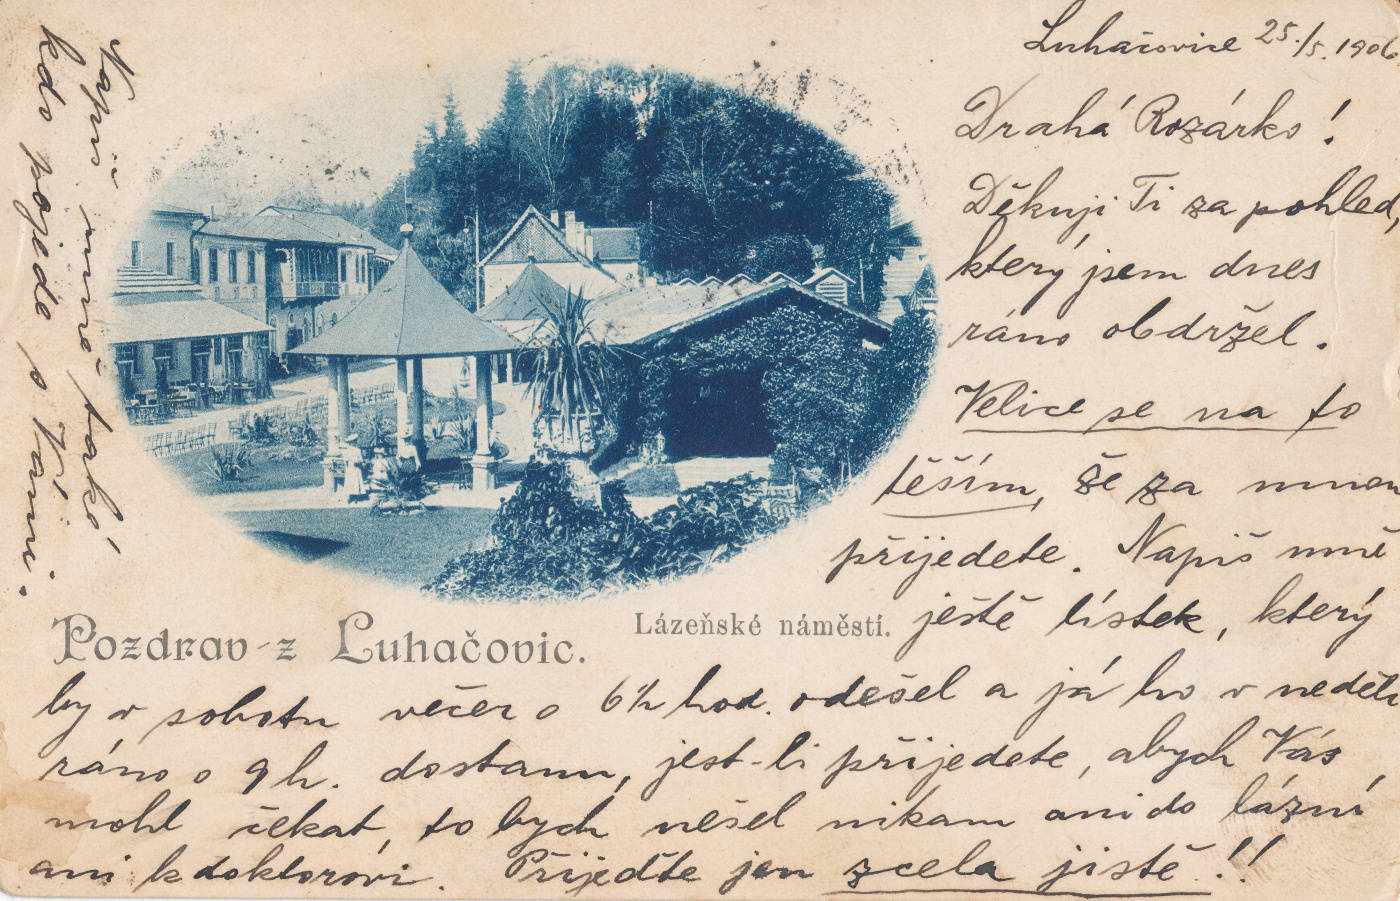 Luhačovice 25./5. 1906.
Drahá Rozárko!
Děkuji Ti za pohled,
který jsem dnes
ráno obdržel.
Velice se na to
těším, že za mnou
přijedete. Napiš mně
ještě lístek, který
by v sobotu večer o 6½ hod. odešel a já ho v neděli
ráno o 9 h. dostanu, jest-li přijedete, abych Vás
mohl čekat, to bych nešel nikam ani do lázní
ani k doktorovi. Přijeďte jen zcela jistě!!
Napiš mně také
kdo pojede s Vámi.
Pozdrav z Luhačovic.
Lázeňské náměstí.